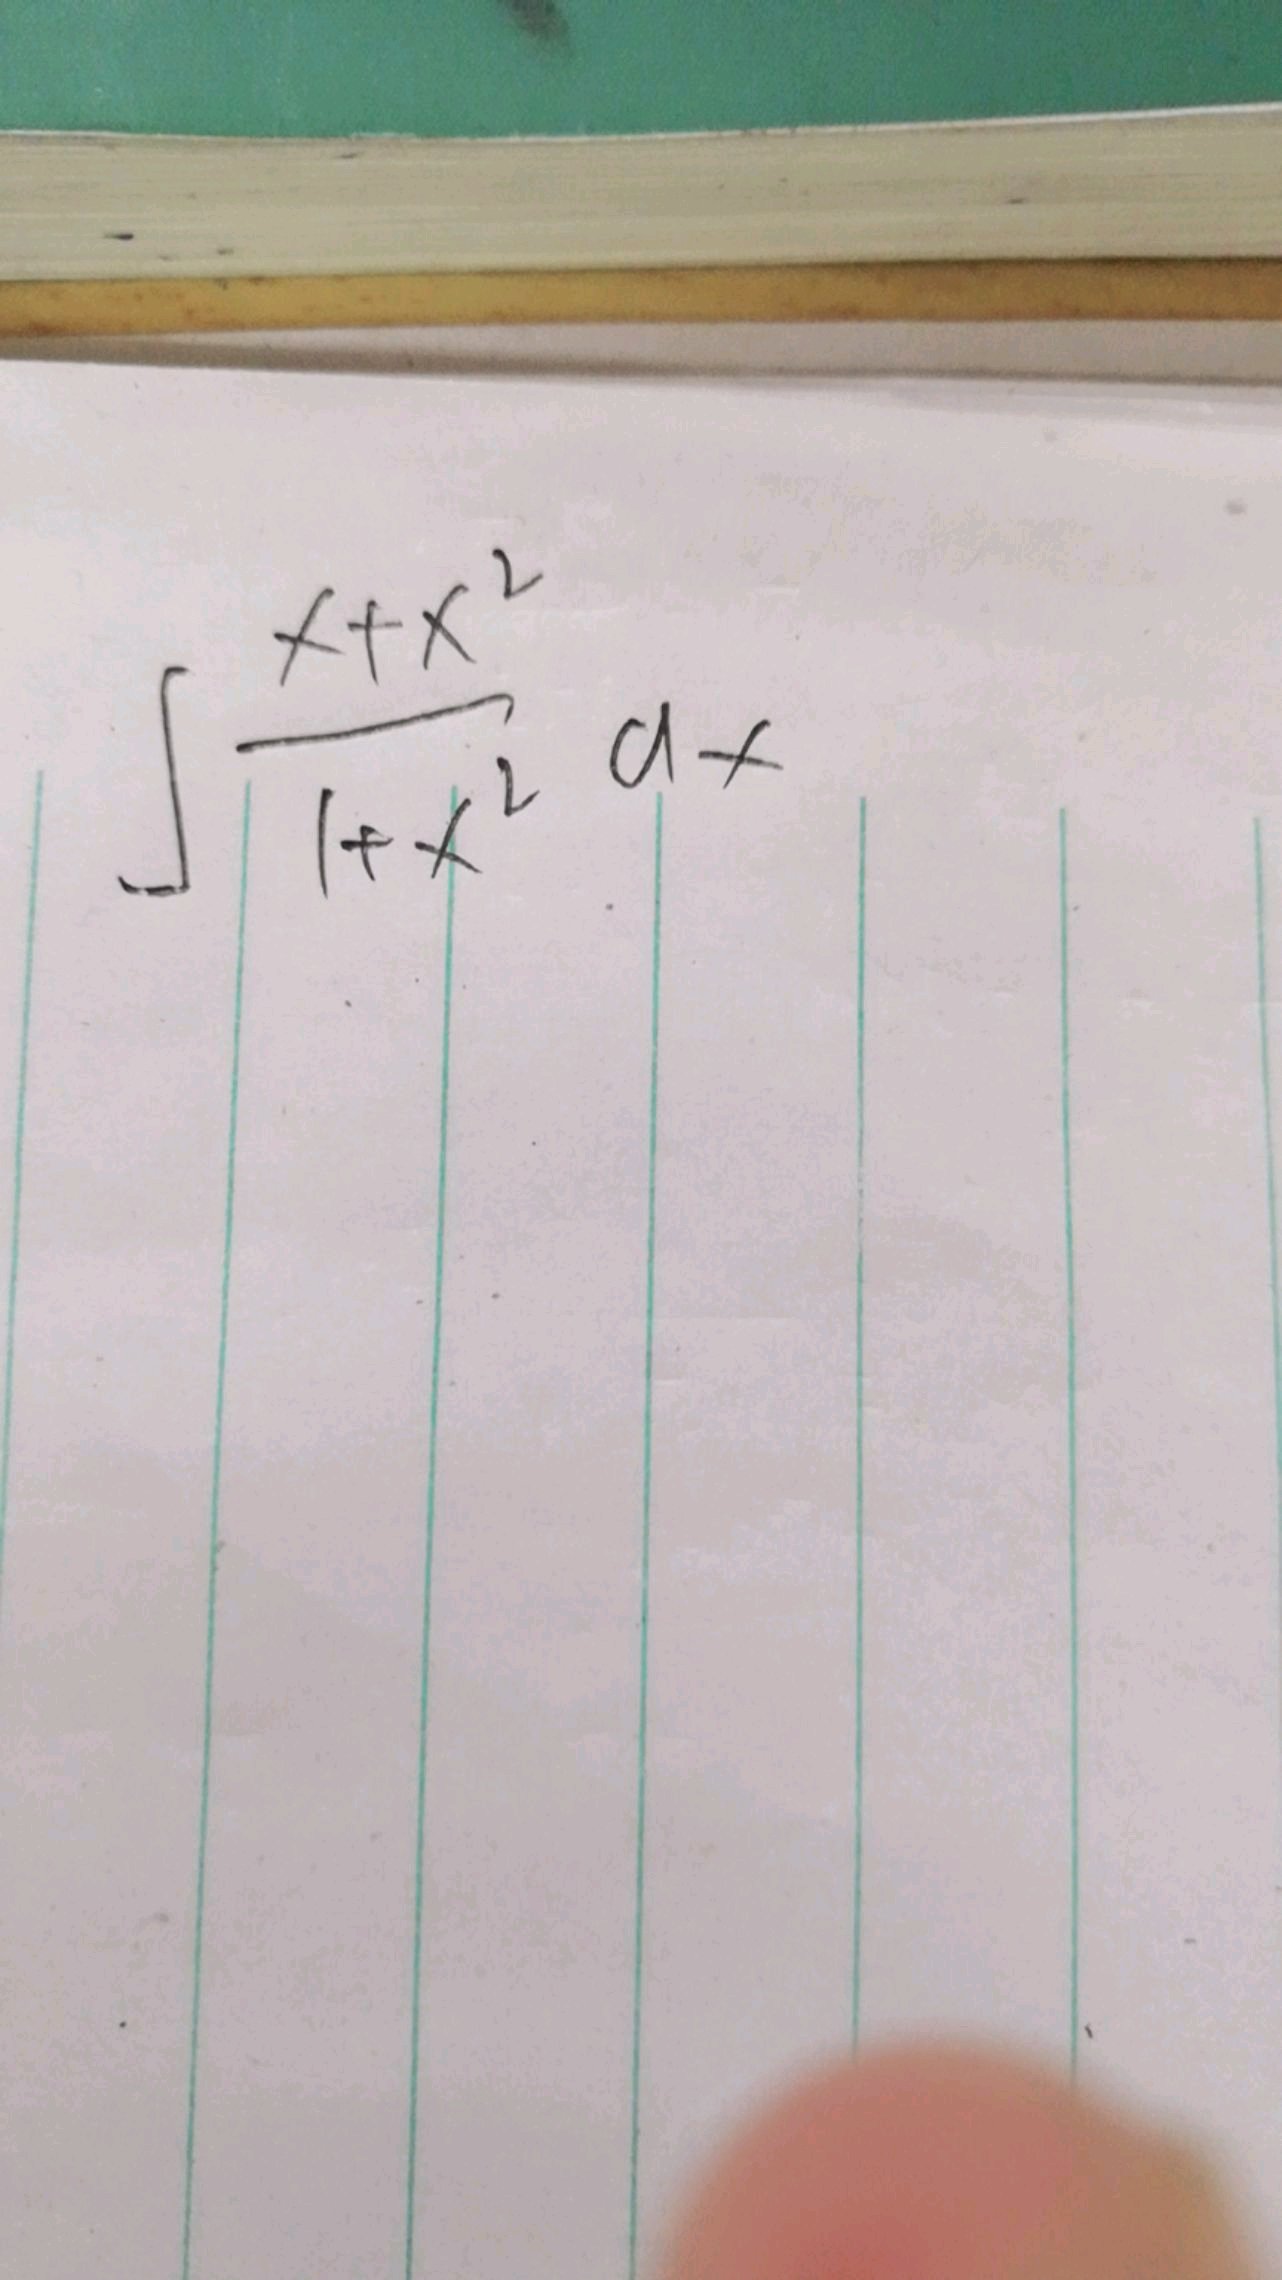 ∫ \frac{x+x^2}{1+x^2} dx